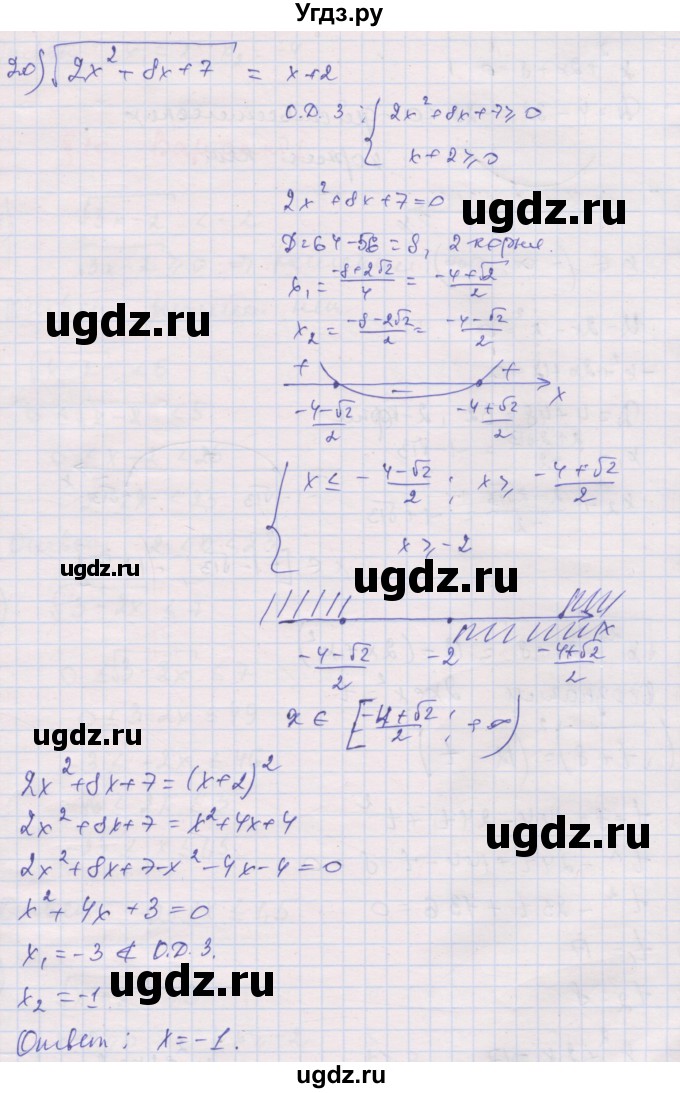 Угдз.ру
20) √(2x² + 8x + 7) = x+2
О.Д.З : { 2x²+8x+7⩾0
x+2⩾0
2x²+8x+7=0
ugdz.ru
D=64-56=8, 2 корня.
x₁ = (-8+2√2)/4 = (-4+√2)/2
ugdz.ru
x₂ = (-8-2√2)/2 = (-4-√2)/2
+ − + x
(-4-√2)/2 (-4+√2)/2
{ x ≤ - (4-√2)/2 ; x ⩾ (-4+√2)/2
x ⩾ -2
ugdz.ru
ugdz.ru
x
(-4-√2)/2 -2 (-4+√2)/2
x ∈ [(-4+√2)/2 ; +∞)
ugdz.ru
2x²+8x+7=(x+2)²
2x²+8x+7=x²+4x+4
ugdz.ru
2x²+8x+7-x²-4x-4=0
x²+4x+3=0
x₁=-3 ∉ О.Д.З.
ugdz.ru
x₂=-1
Ответ: x=-1.
ugdz.ru